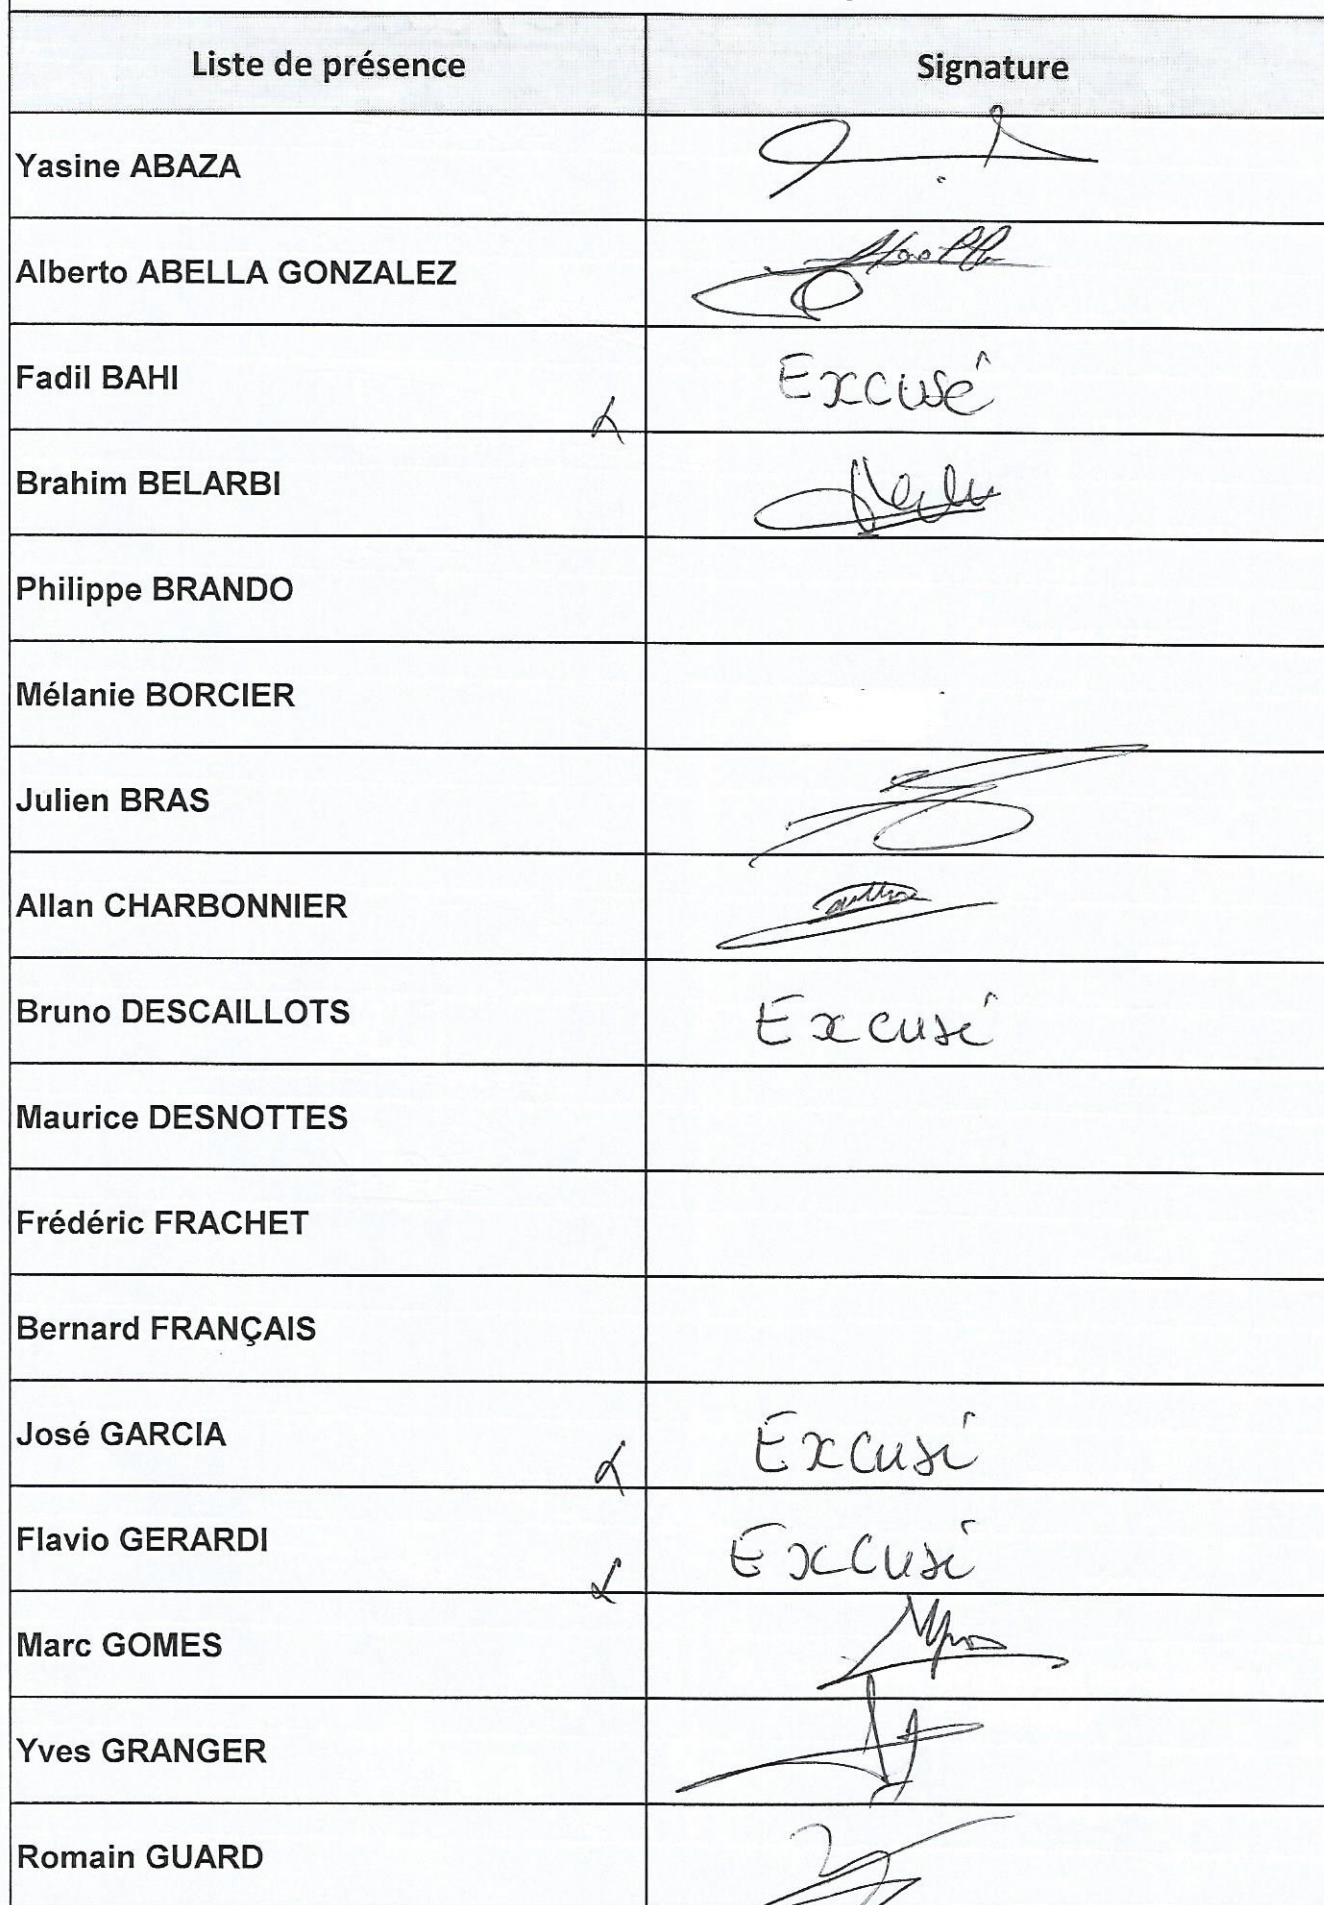 Liste de présence
Signature
Yasine ABAZA
Alberto ABELLA GONZALEZ
Fadil BAHI
Excusé
Brahim BELARBI
Philippe BRANDO
Mélanie BORCIER
Julien BRAS
Allan CHARBONNIER
Bruno DESCAILLOTS
Excusé
Maurice DESNOTTES
Frédéric FRACHET
Bernard FRANÇAIS
José GARCIA
Excusé
Flavio GERARDI
Excusé
Marc GOMES
Yves GRANGER
Romain GUARD